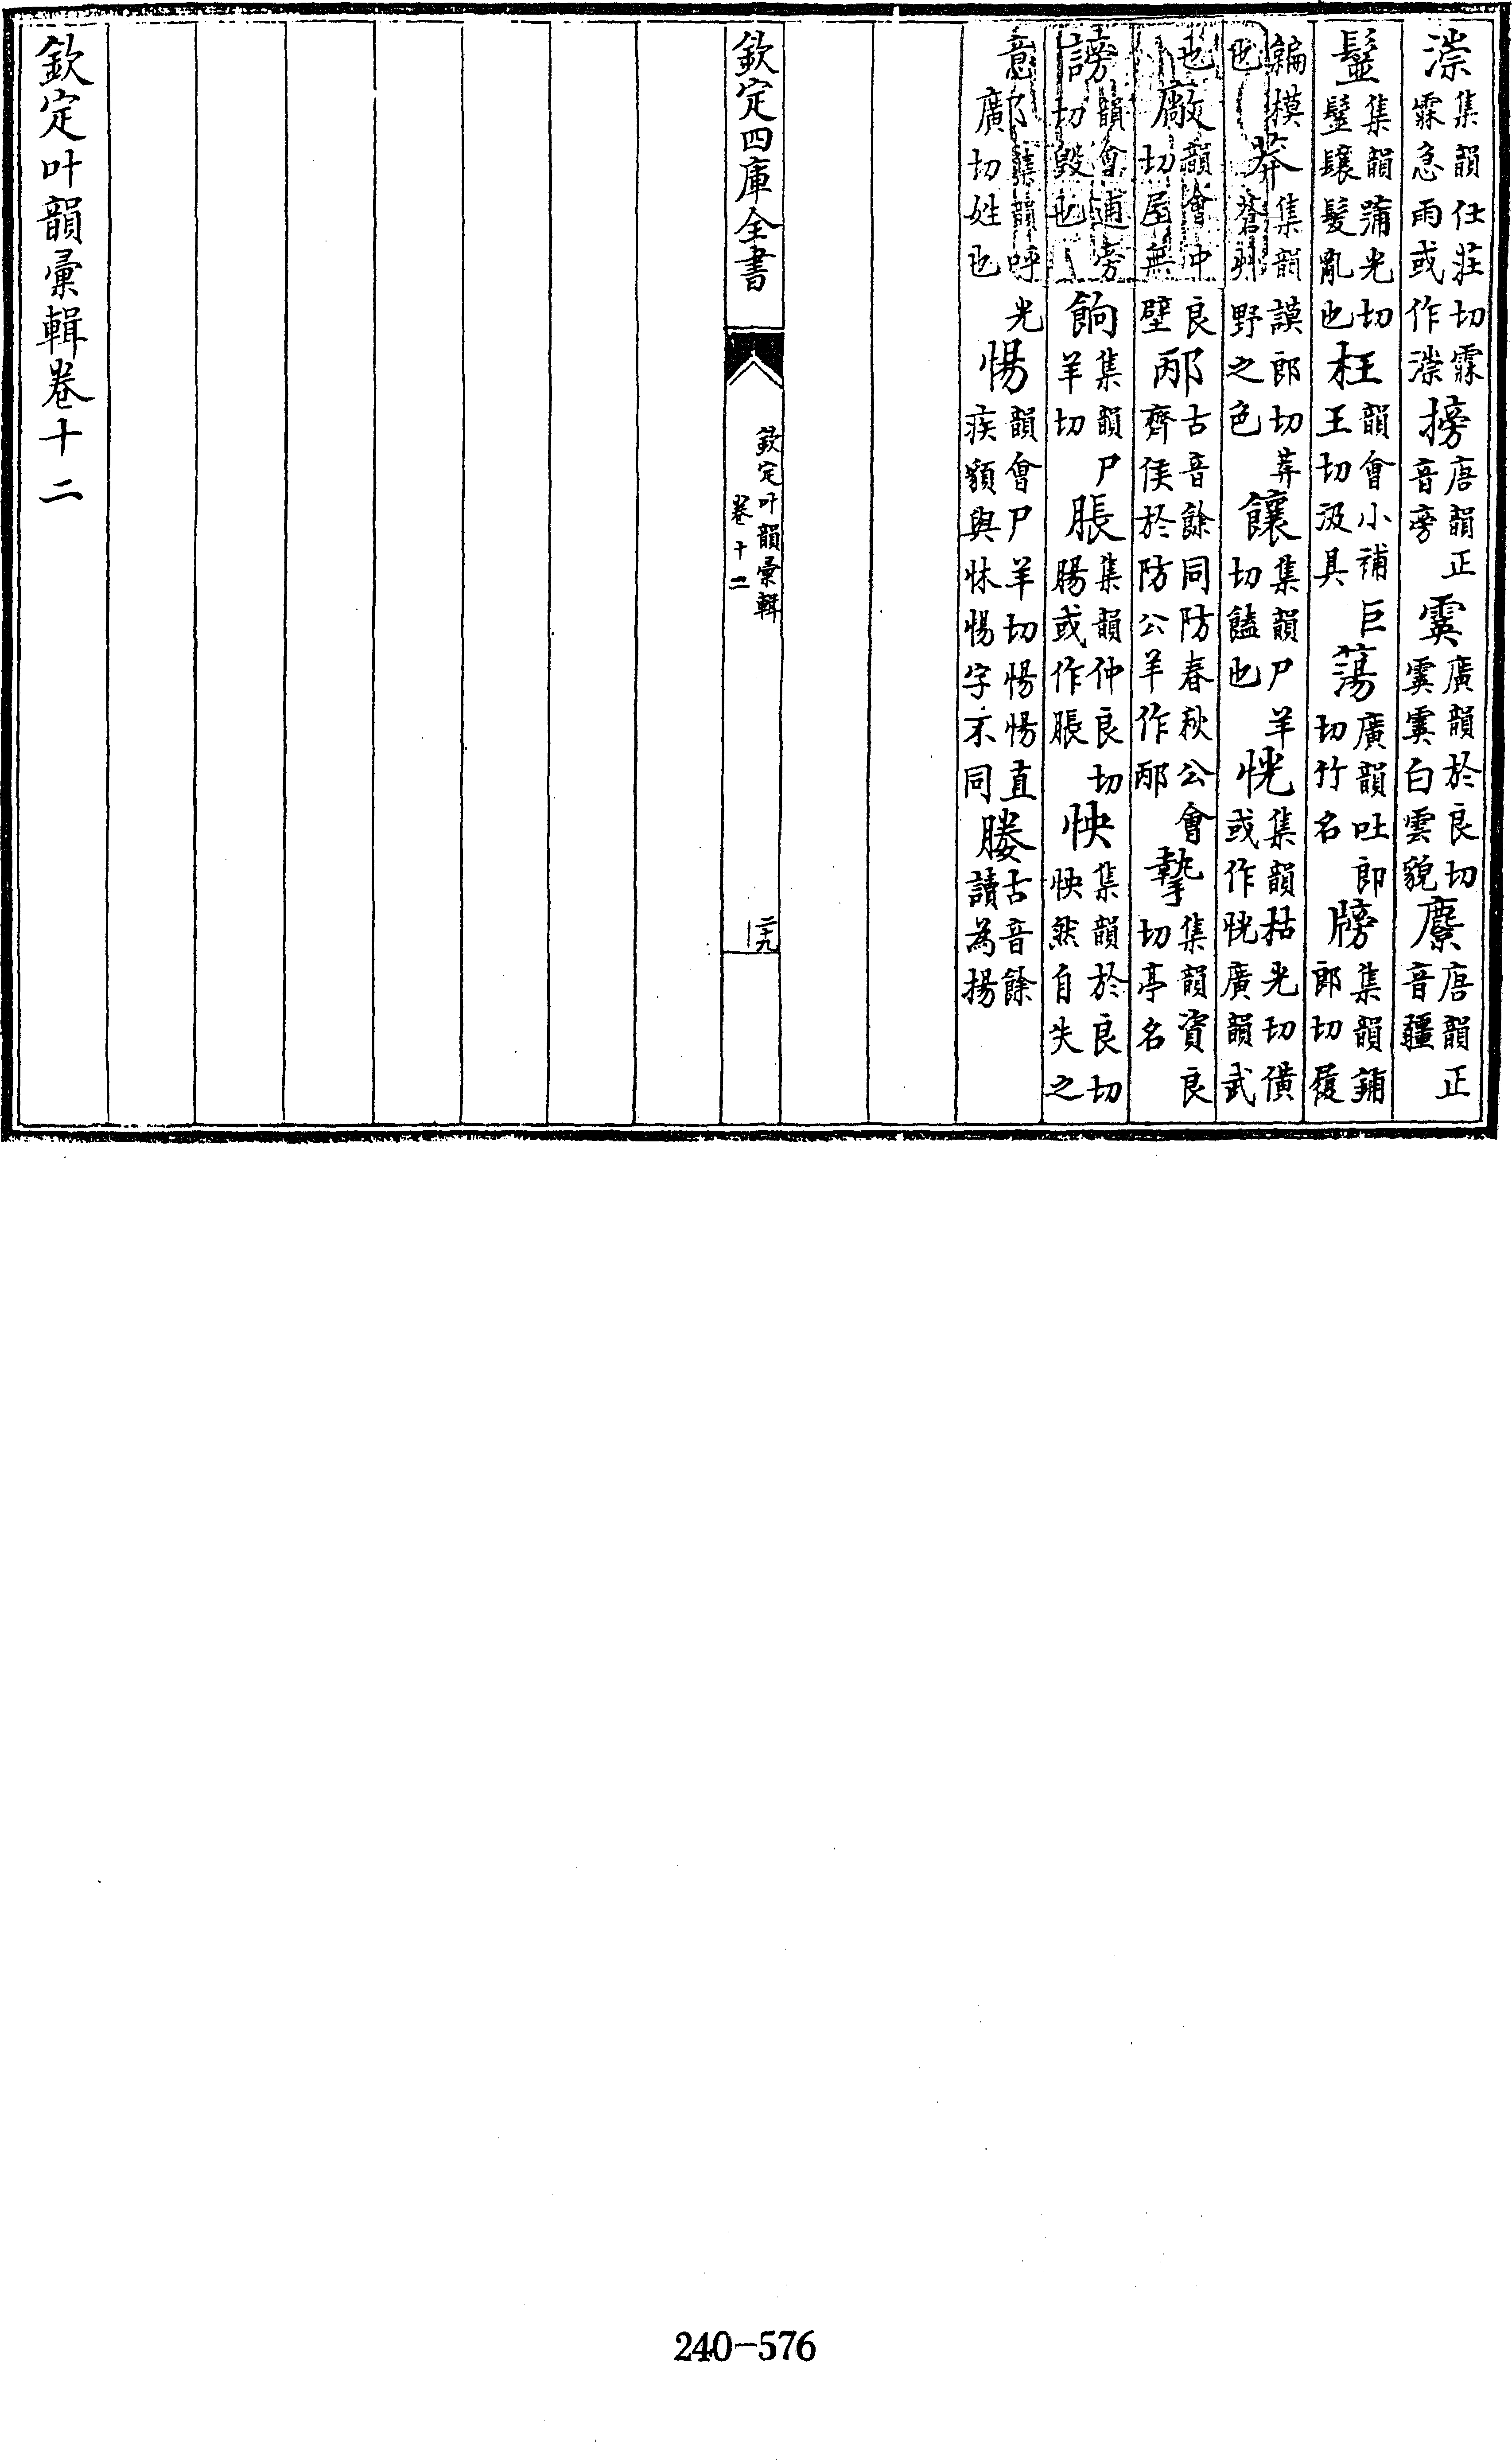 漴集韻仕莊切霖霖急雨或作漴搒唐韻正音旁霙廣韻於良切霙霙白雲貌麖唐韻正音疆
䰃集韻蒲光切䰃鬤髮亂也枉韻會小補巨王切汲具蕩廣韻吐郎切竹名牓集韻鋪郎切履
編模也莽集韻謨郎切莽蒼艸野之色饟集韻尸羊切饁也恍集韻枯光切僙或作恍廣韻武
也廠韻會仲良切屋無壁邴古音餘同防春秋公會齊侯於防公羊作邴摯集韻資良切亭名
謗韻會逋旁切毀也餉集韻尸羊切脹集韻仲良切腸或作脹怏集韻於良切怏然自失之
意集韻呼光廣切姓也愓韻會尸羊切愓愓直疾貌與怵愓字不同媵古音餘讀為揚
欽定四庫全書
欽定叶韻彚輯
卷十二
二十九
欽定叶韻彚輯卷十二
240-576